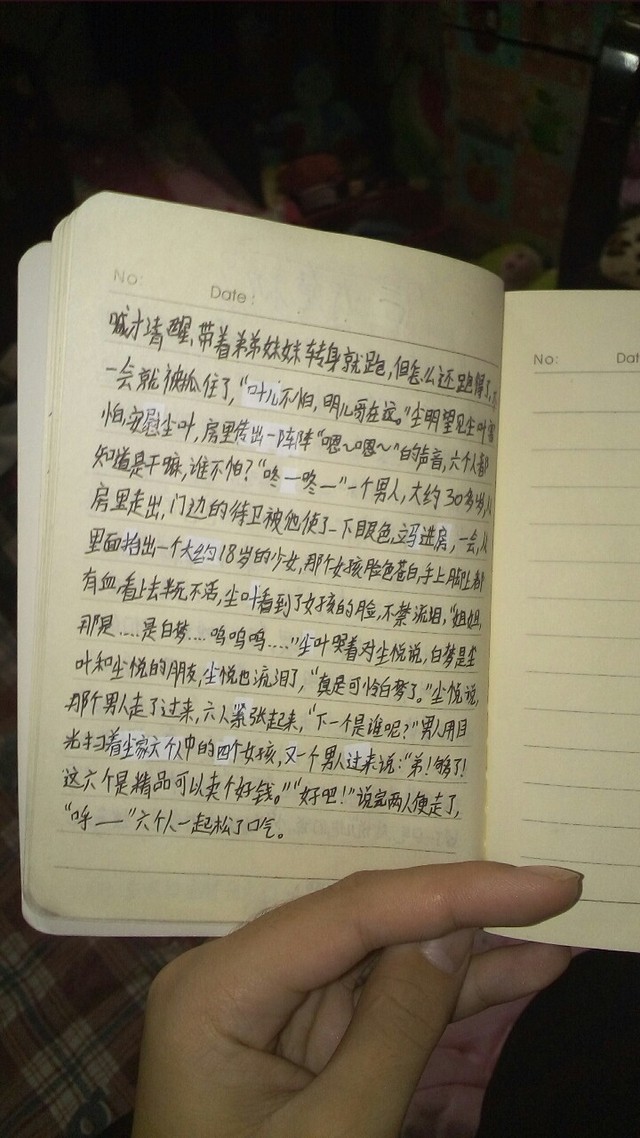 No: Date:
喊才清醒，带着弟弟妹妹转身就跑，但怎么还跑得了，不
一会就被抓住了，“叶儿不怕，明儿哥在这。”尘明望见尘叶害
怕，安慰尘叶，房里传出一阵阵“嗯～嗯～”的声音，六个人都
知道是干嘛，谁不怕？“咚—咚—”一个男人，大约30多岁，从
房里走出，门边的侍卫被他使了一下眼色，立马进房，一会，从
里面抬出一个大约18岁的少女，那个女孩脸色苍白，手上脚上都
有血，看上去半死不活，尘叶看到了女孩的脸，不禁流泪，“姐姐，
那是....是白梦....呜呜呜....”尘叶哭着对尘悦说，白梦是尘
叶和尘悦的朋友，尘悦也流泪了，“真是可怜白梦了。”尘悦说，
那个男人走了过来，六人紧张起来，“下一个是谁呢？”男人用目
光扫着尘家六个人中的四个女孩，又一个男人过来说：“弟！够了！
这六个是精品可以卖个好钱。”“好吧！”说完两人便走了，
“呼——”六个人一起松了口气。
No: Dat